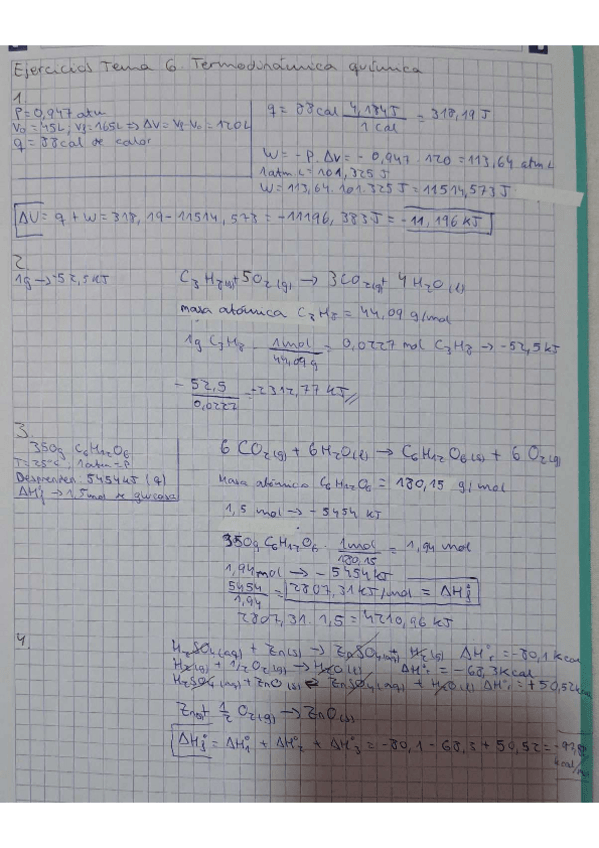 Ejercicios Tema 6. Termodinámica química
1.
P = 0,947 atm
V0 = 45L; Vf = 165L => ΔV = Vf - V0 = 120L
q = 88cal de calor
q = 88cal 4,184J / 1 cal = 318,19 J
W = -P. ΔV = - 0,947 . 120 = 113,64 atm.L
1atm.L = 101,325 J
W = 113,64. 101.325 J = 11514,573 J
ΔU = q + w = 318,19 - 11514,573 = -11196,383J = -11,196 KJ
2.
1g -> -52,5 KJ
C3H8(g) + 5O2(g) -> 3CO2(g) + 4H2O(l)
masa atómica C3H8 = 44,09 g/mol
1g C3H8 . 1mol / 44,09g = 0,0227 mol C3H8 -> -52,5 KJ
- 52,5 / 0,0227 = -2312,77 KJ //
3.
350g C6H12O6
T = 25°C, 1atm = P
Desprenden: 5454 KJ (q)
ΔHf° -> 1,5 mol de glucosa
6 CO2(g) + 6H2O(l) -> C6H12O6(s) + 6 O2(g)
Masa atómica C6H12O6 = 180,15 g/mol
1,5 mol -> - 5454 KJ
350g C6H12O6 . 1mol / 180,15 = 1,94 mol
1,94 mol -> - 5454 KJ
5454 / 1,94 = 2807,31 KJ/mol = ΔHf°
2807,31 . 1,5 = 4210,96 KJ
4.
H2SO4(aq) + Zn(s) -> ZnSO4(aq) + H2(g) ΔH°r = -80,1 Kcal
H2(g) + 1/2 O2(g) -> H2O(l) ΔH°r = -68,3 Kcal
H2SO4(aq) + ZnO(s) ZnSO4(aq) + H2O(l) ΔH°r = +50,52 Kcal
Zn(s) + 1/2 O2(g) -> ZnO(s)
ΔHf° = ΔH1° + ΔH2° + ΔH3° = -80,1 - 68,3 + 50,52 =